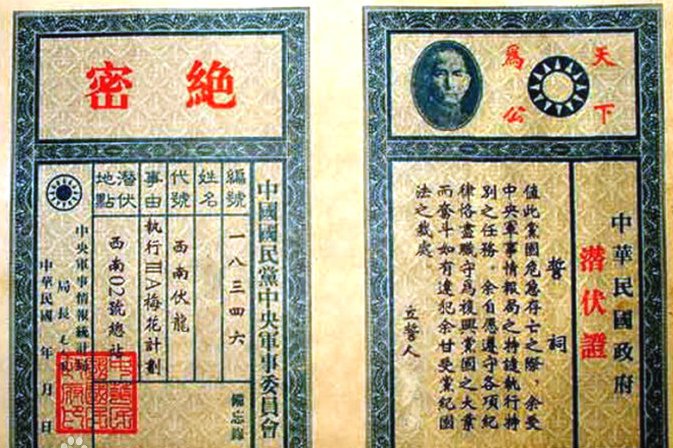 天下
為公
中華民國政府
潜伏證
誓祠
值此黨國危急存亡之際，余受
中央軍事情報局之特縫執行特
別之任務。余自愿遵守各項紀
律恪盡職守為複興黨國之大業
而奮斗如有違犯余甘受黨紀國
法之裁處。
立誓人
絕密
中國國民黨中央軍事委員會
備忘錄
編號 一八三四六
姓名
代號 西南伏龍
事由 執行ⅢA梅花計劃
潜伏地點 西南02號總社
中央軍事情報統計局
局長
中華民國 年 月 日